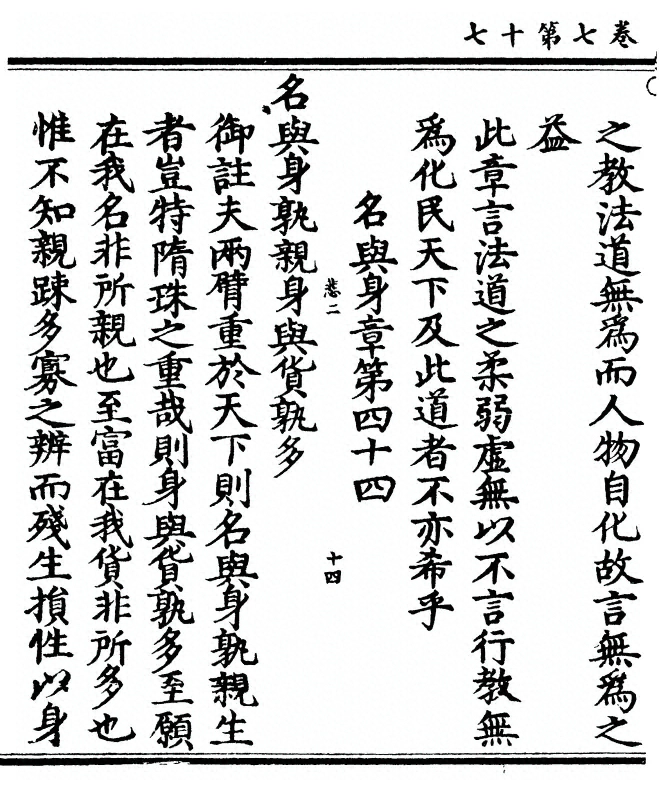 卷七第十七
之教法道無爲而人物自化故言無爲之
益
此章言法道之柔弱虛無以不言行教無
爲化民天下及此道者不亦希乎
名與身章第四十四
悲二
十四
名與身孰親身與貨孰多
御註夫兩臂重於天下則名與身孰親生
者豈特隋珠之重哉則身與貨孰多至願
在我名非所親也至富在我貨非所多也
惟不知親踈多寡之辨而殘生損性以身